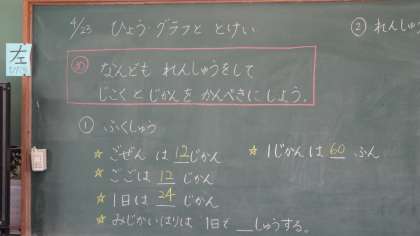 4/23 ひょう・グラフと とけい
② れんしゅ
左
め なんども れんしゅうをして
じこくとじかんを かんぺきにしよう。
① ふくしゅう
☆ ごぜん は 12 じかん
☆ 1じかんは 60 ぷん
☆ ごごは 12 じかん
☆ 1日は 24 じかん
☆ みじかいはりは 1日で __しゅうする。